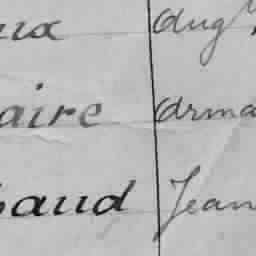 aux Aug
aire Arma
baud Jean